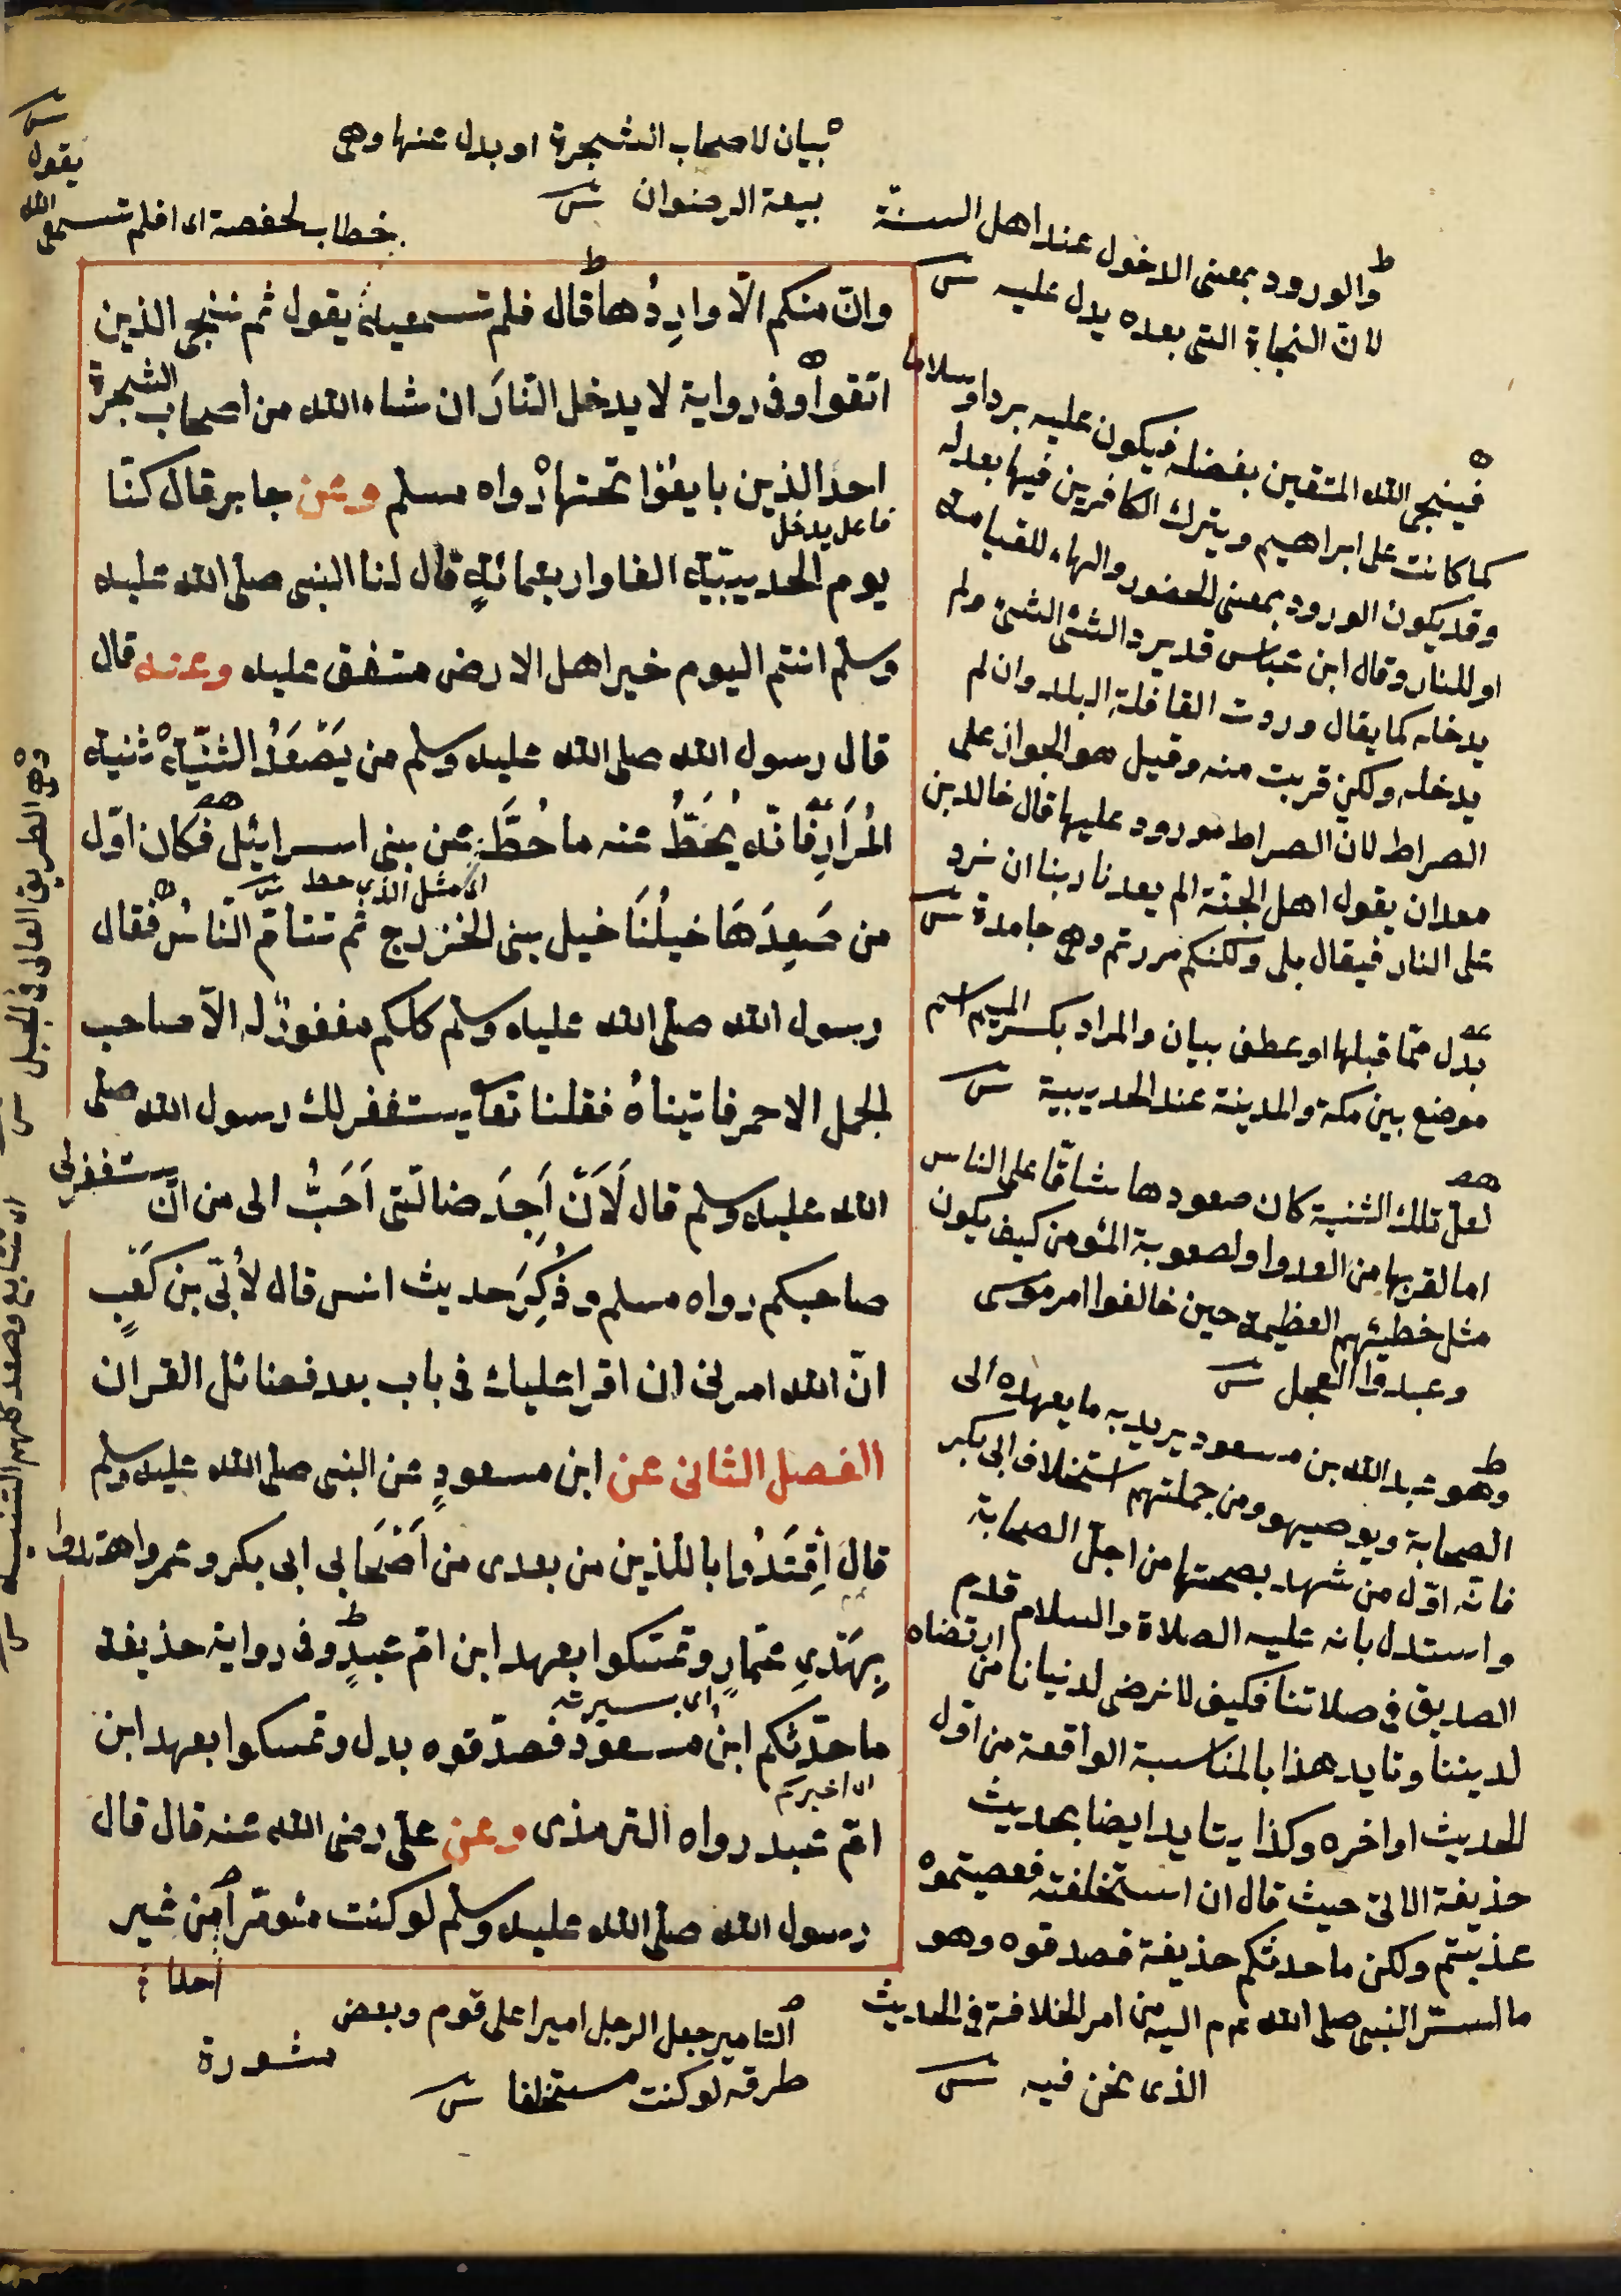 بيان لاصحاب الشجرة او بدل عنها وهي
بيعة الرضوان ش
خطاب لحفصة اى افلم تسمعى الله
يقول
ش
وانّ منكم الّا وارِدُها قال فلم تسمعيه يقول ثم ننجى الذين
اتقوا وفى رواية لا يدخل النّارَ ان شاء الله من اصحاب الشجرة
احدٌ الذين بايعُوا تحتها رواه مسلم وعن جابر قال كنّا
فاعل يدخل
يوم الحديبيّة الفا واربعمائةٍ قال لنا النبى صلى الله عليه
وسلم انتم اليوم خير اهل الارض متفق عليه وعنه قال
قال رسول الله صلى الله عليه وسلم من يَصْعَدُ الثنيّة ثنية
المُرَارِ فانّه يُحَطُّ عنه ما حُطَّ عن بنى اسرائيل فكان اوّل
اى مثل الذى حط ش
من صَعِدَهَا خيلُنَا خيل بنى الخزرج ثم تتامّ النّاسُ فقال
رسول الله صلى الله عليه وسلم كلكم مغفورٌ له الّا صاحب
الجمل الاحمر فاتيناهُ فقلنا تعا يستغفر لك رسول الله صلى
الله عليه وسلم قال لَاَنْ اَجِدَ ضالّتى اَحَبُّ الى من ان يستغفر لى
صاحبكم رواه مسلم وذُكِرَ حديث انس قال لأُبىّ بن كعْبٍ
انّ الله امرنى ان اقرا عليك فى باب بعد فضائل القران
الفصل الثانى عن ابن مسعودٍ عن النبى صلى الله عليه وسلم
قال اِقْتَدُوا باللذين من بعدى من اَصْحَابى ابى بكر وعمر واهتدوا
بِهَدْىِ عمّارٍ وتمسّكوا بعهد ابن امّ عبدٍ وفى رواية حذيفة
اى سيرته
ما حدّثكم ابن مسعود فصدّقوه بدل وتمسكوا بعهد ابن
اى اخبركم
امّ عبد رواه الترمذى وعن علىّ رضى الله عنه قال قال
رسول الله صلى الله عليه وسلم لو كنت مؤمّرا من غير
احدا
مشورة
التامير جعل الرجل اميرا على قوم وبعض
طرقه لو كنت مستخلفا ش
والورود بمعنى الدخول عند اهل السنة
لانّ النجاة التى بعده يدل عليه ش
فينجى الله المتقين بفضله فيكون عليه بردا وسلاما
كما كانت على ابراهيم ويترك الكافرين فيها بعدله
وقد يكون الورود بمعنى الحضور والهاء للقيامة
او للنار وقال ابن عباس قد يرد الشئ الشئ ولم
يدخله كما يقال وردت القافلة البلد وان لم
يدخله ولكن قربت منه وقيل هو الجواز على
الصراط لان الصراط مورود عليها قال خالد بن
معدان يقول اهل الجنّة الم يعدنا ربنا ان نرد
على النار فيقال بلى ولكنكم مررتم وهى جامدة ش
بدل ممّا قبلها او عطف بيان والمراد بكسر الميم اسم
موضع بين مكة والمدينة عند الحديبية ش
لعلّ تلك الثنية كان صعودها شاقّا على الناس
اما لقربها من العدو او لصعوبة المؤمن كيف يكون
مثل خطيئتهم العظيمة حين خالفوا امر موسى
وعبدوا العجل ش
وهو عبد الله بن مسعود يريد به ما يعهده الى
الصحابة ويوصيهم ومن جملتهم استخلاف ابى بكر
فانّه اوّل من شهد بصحتها من اجلّ الصحابة
واستدل بانه عليه الصلاة والسلام قدم
الصديق فى صلاتنا فكيف لا نرضى لدنيانا من ارتضاه
لديننا وتايد هذا بالمناسبة الواقعة من اول
الحديث اواخره وكذا يتايد ايضا بحديث
حذيفة الاتى حيث قال ان استخلفته فعصيتموه
عذبتم ولكن ما حدثكم حذيفة فصدقوه وهو
ما اسرّ النبى صلى الله عم اليه من امر الخلافة فى الحديث
الذى نحن فيه ش
وهى الطريق العالى فى الجبل ش
اى تتابع وصعد كلهم الثنية ش